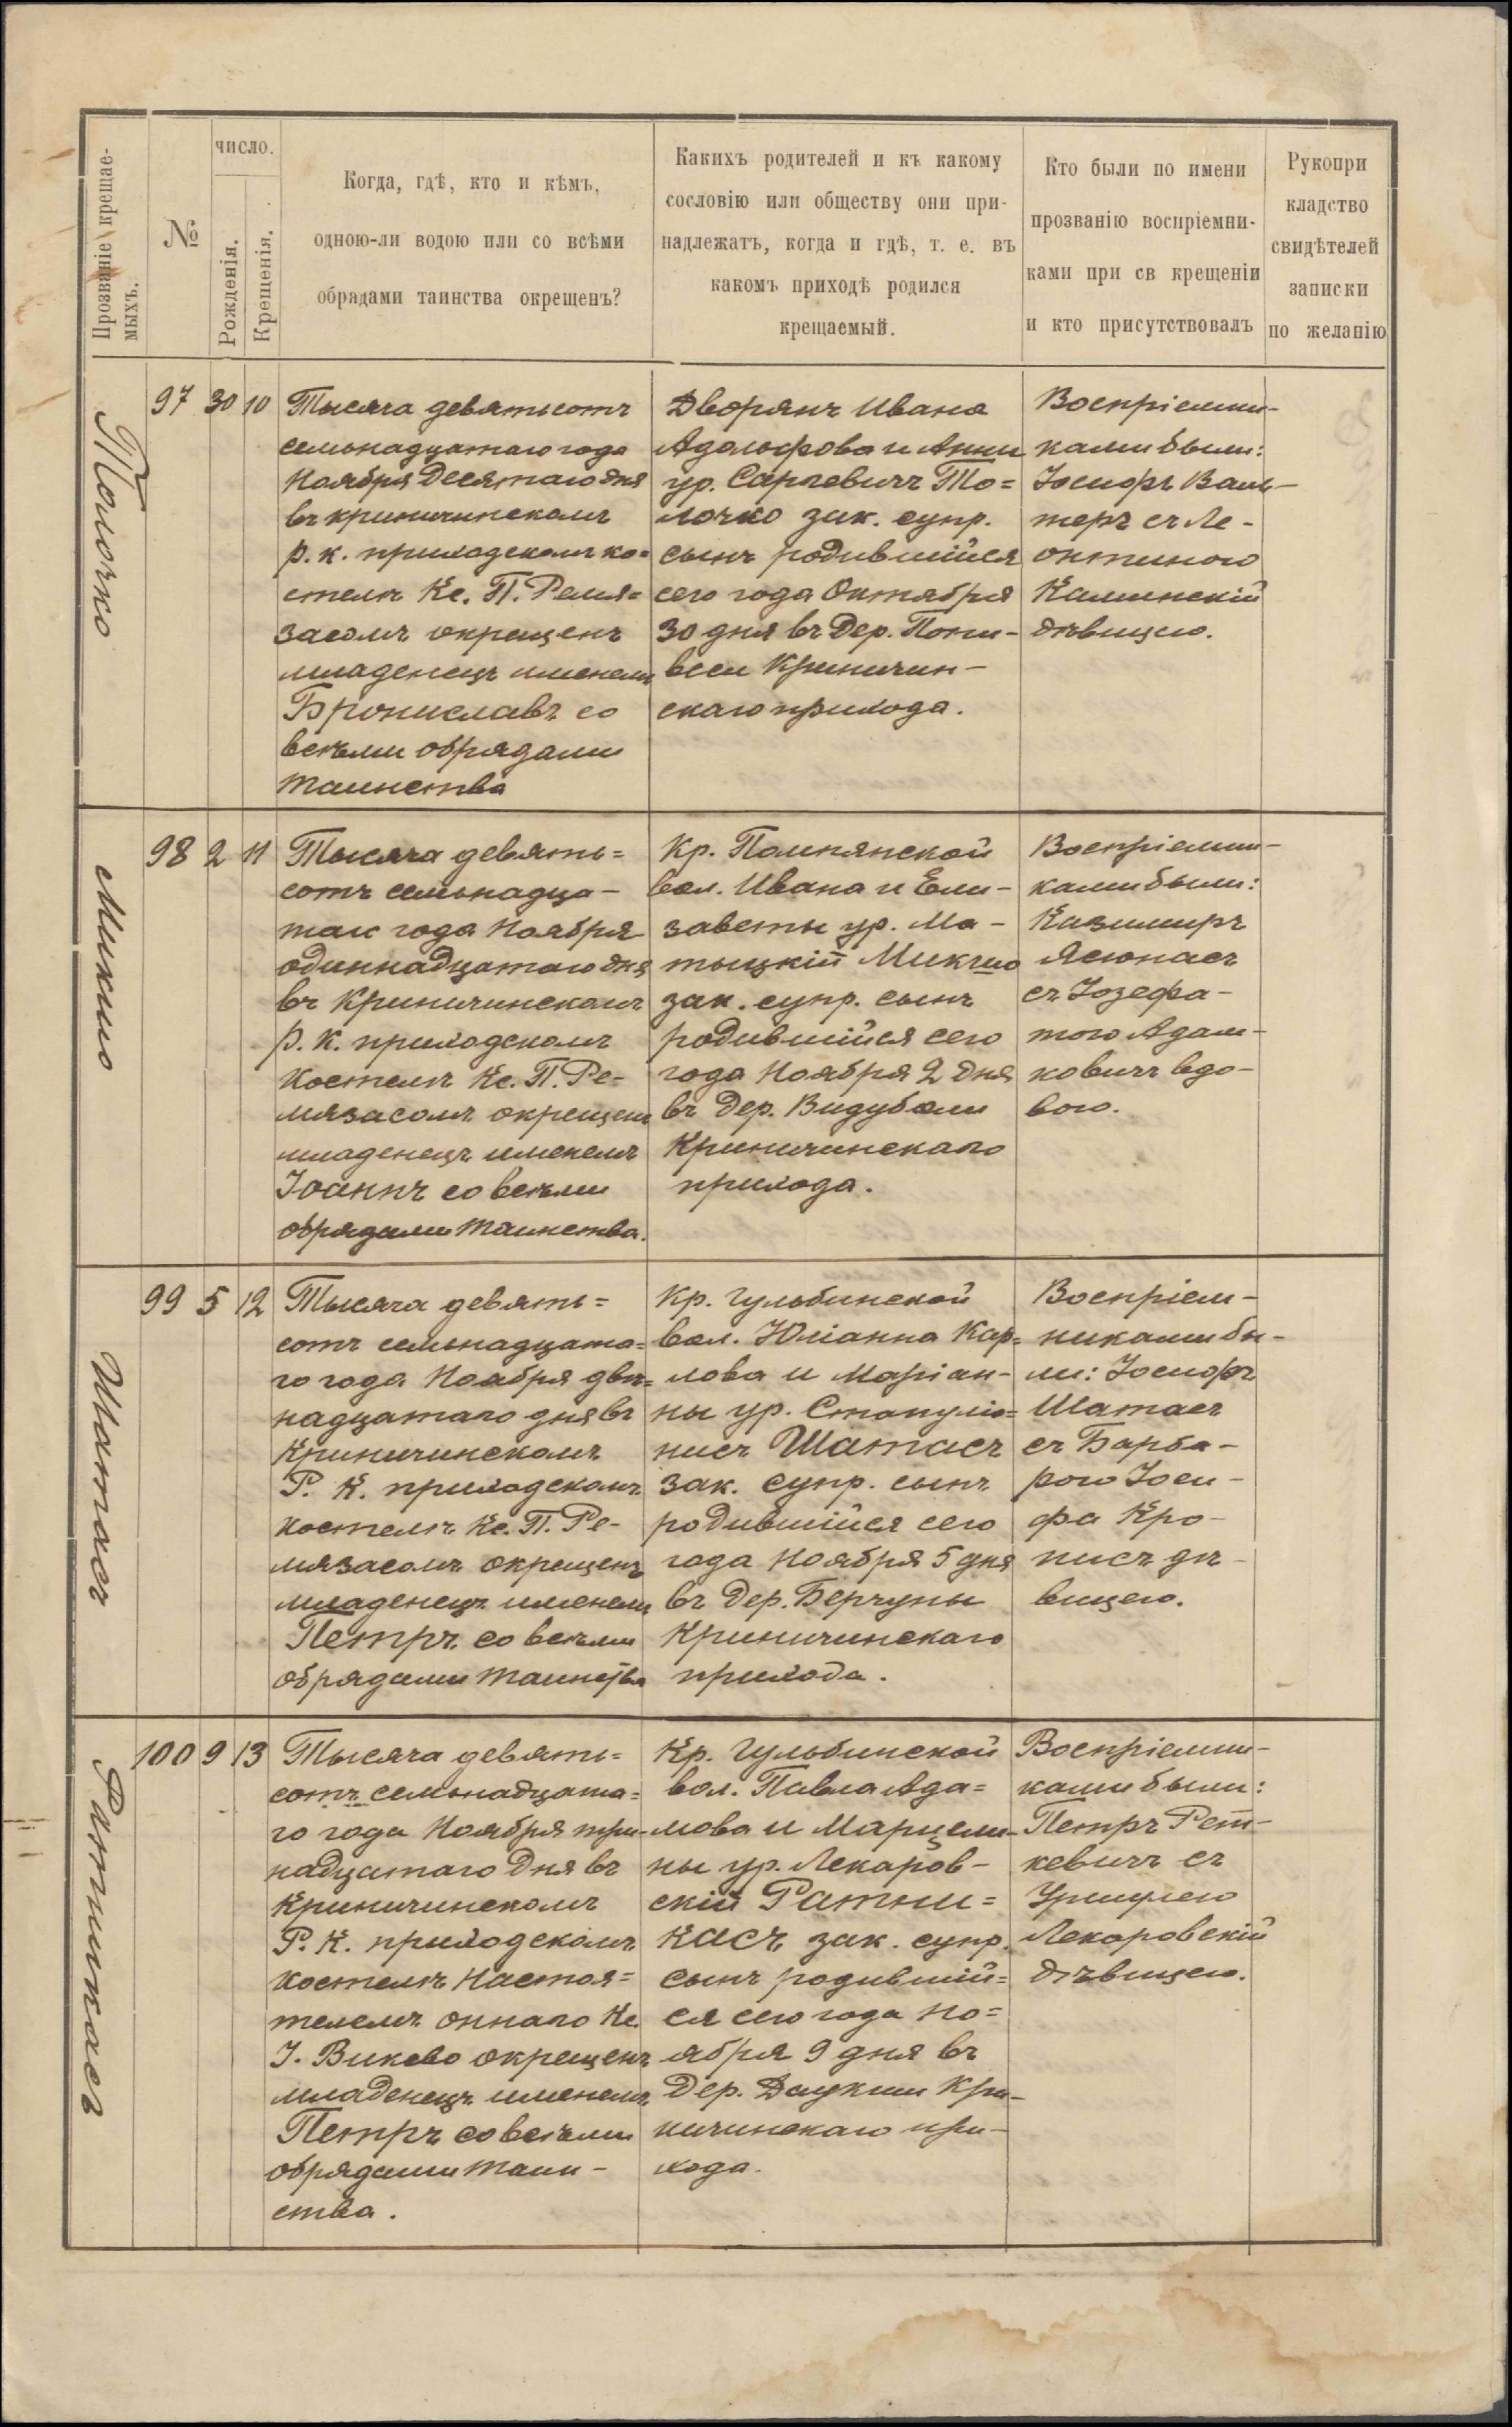 Прозваніе крещае-
мыхъ.
№
число.
Рожденія.
Крещенія.
Когда, гдѣ, кто и кѣмъ,
одною-ли водою или со всѣми
обрядами таинства окрещенъ?
Какихъ родителей и къ какому
сословію или обществу они при-
надлежатъ, когда и гдѣ, т. е. въ
какомъ приходѣ родился
крещаемый.
Кто были по имени
прозванію воспріемни-
ками при св крещеніи
и кто присутствовалъ
Рукопри
кладство
свидѣтелей
записки
по желанію
Толочко
97 30 10
Тысяча девятьсотъ
семьнадцатаго года
Ноября Десятаго дня
въ криничинскомъ
р. к. приходскомъ ко=
стелѣ Кс. П. Реми=
засомъ окрещенъ
младенецъ именемъ
Брониславъ со
всѣми обрядами
таинства
Дворянъ Ивана
Адольфова и Анны
ур. Саргевичъ То=
лочко зак. супр.
сынъ родившійся
сего года Октября
30 дня въ Дер. Поши-
веси Криничин-
скаго прихода.
Воспріемни-
ками были:
Іосифъ Валь-
теръ съ Ле-
онтиною
Каминскій
дѣвицею.
Микшо
98 2 11
Тысяча девять=
сотъ семьнадца-
таго года Ноября
одиннадцатаго дня
въ Криничинскомъ
р. к. приходскомъ
Костелѣ Кс. П. Ре-
мязасомъ окрещенъ
младенецъ именемъ
Іоаннъ со всѣми
обрядами таинства.
Кр. Помпянской
вол. Ивана и Ели-
заветы ур. Ма-
тыцкій Микшо
зак. супр. сынъ
родившійся сего
года Ноября 2 дня
въ Дер. Видуболи
Криничинскаго
прихода.
Воспріемни-
ками были:
Казимиръ
Ясюнасъ
съ Іозефа-
тою Адам-
ковичъ вдо-
вою.
Шатасъ
99 5 12
Тысяча девять=
сотъ семьнадцата=
го года Ноября двѣ=
надцатаго дня въ
Криничинскомъ
Р. К. приходскомъ
костелѣ Кс. П. Ре-
мязасомъ окрещенъ
младенецъ именемъ
Петръ со всѣми
обрядами таинства
Кр. Гульбинской
вол. Юліанна Кар=
лова и Маріан-
ны ур. Стапуліо=
нисъ Шатасъ
зак. супр. сынъ
родившійся сего
года Ноября 5 дня
въ Дер. Берчуны
Криничинскаго
прихода.
Воспріем-
никами бы-
ли: Іосифъ
Шатасъ
съ Барба-
рою Іоси-
фа Кро-
писъ дѣ-
вицею.
Ратникасъ
100 9 13
Тысяча девять=
сотъ семьнадцата=
го года Ноября три-
надцатаго Дня въ
Криничинскомъ
Р. К. приходскомъ
костелѣ Настоя=
телемъ оннаго Кс.
І. Виксво окрещенъ
младенецъ именемъ
Петръ со всѣми
обрядами таин-
ства.
Кр. Гульбинской
вол. Павла Ада=
мова и Марцели-
ны ур. Лекаров-
скій Ратни=
касъ зак. супр.
сынъ родившій=
ся сего года Но=
ября 9 дня въ
Дер. Даукши Кри-
ничинскаго при-
хода.
Воспріемни-
ками были:
Петръ Рет-
кевичъ съ
Уршулею
Лекаровскій
дѣвицею.